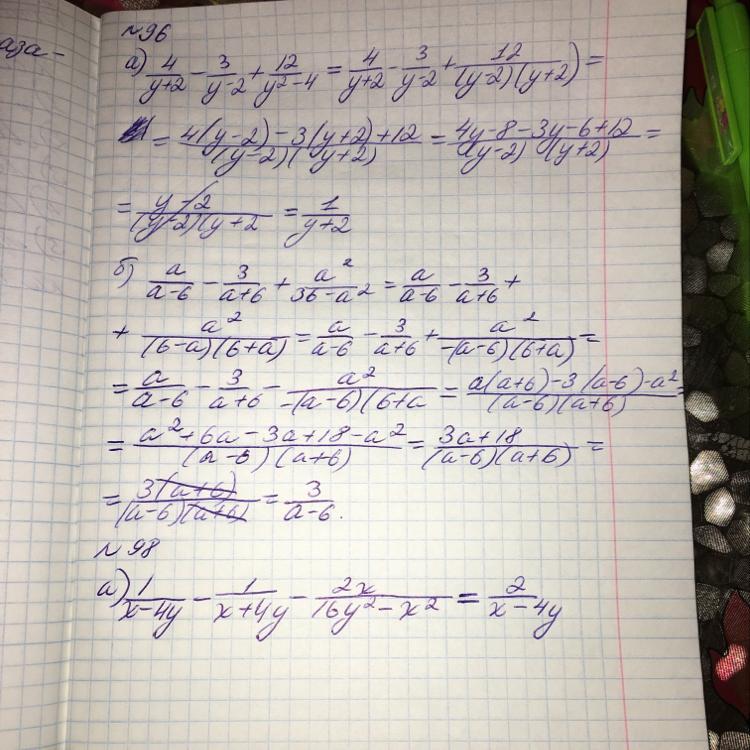 аза-
№96
а) 4/(y+2) - 3/(y-2) + 12/(y²-4) = 4/(y+2) - 3/(y-2) + 12/((y-2)(y+2)) =
= (4(y-2)-3(y+2)+12)/((y-2)(y+2)) = (4y-8-3y-6+12)/((y-2)(y+2)) =
= (y-2)/((y-2)(y+2) = 1/(y+2)
б) a/(a-6) - 3/(a+6) + a²/(36-a²) = a/(a-6) - 3/(a+6) +
+ a²/((6-a)(6+a)) = a/(a-6) - 3/(a+6) + a²/(-(a-6)(6+a)) =
= a/(a-6) - 3/(a+6) - a²/(-(a-6)(6+a) = (a(a+6)-3(a-6)-a²)/((a-6)(a+6)) =
= (a²+6a-3a+18-a²)/((a-6)(a+6)) = (3a+18)/((a-6)(a+6)) =
= 3(a+6)/((a-6)(a+6)) = 3/(a-6).
№98
а) 1/(x-4y) - 1/(x+4y) - 2x/(16y²-x²) = 2/(x-4y)